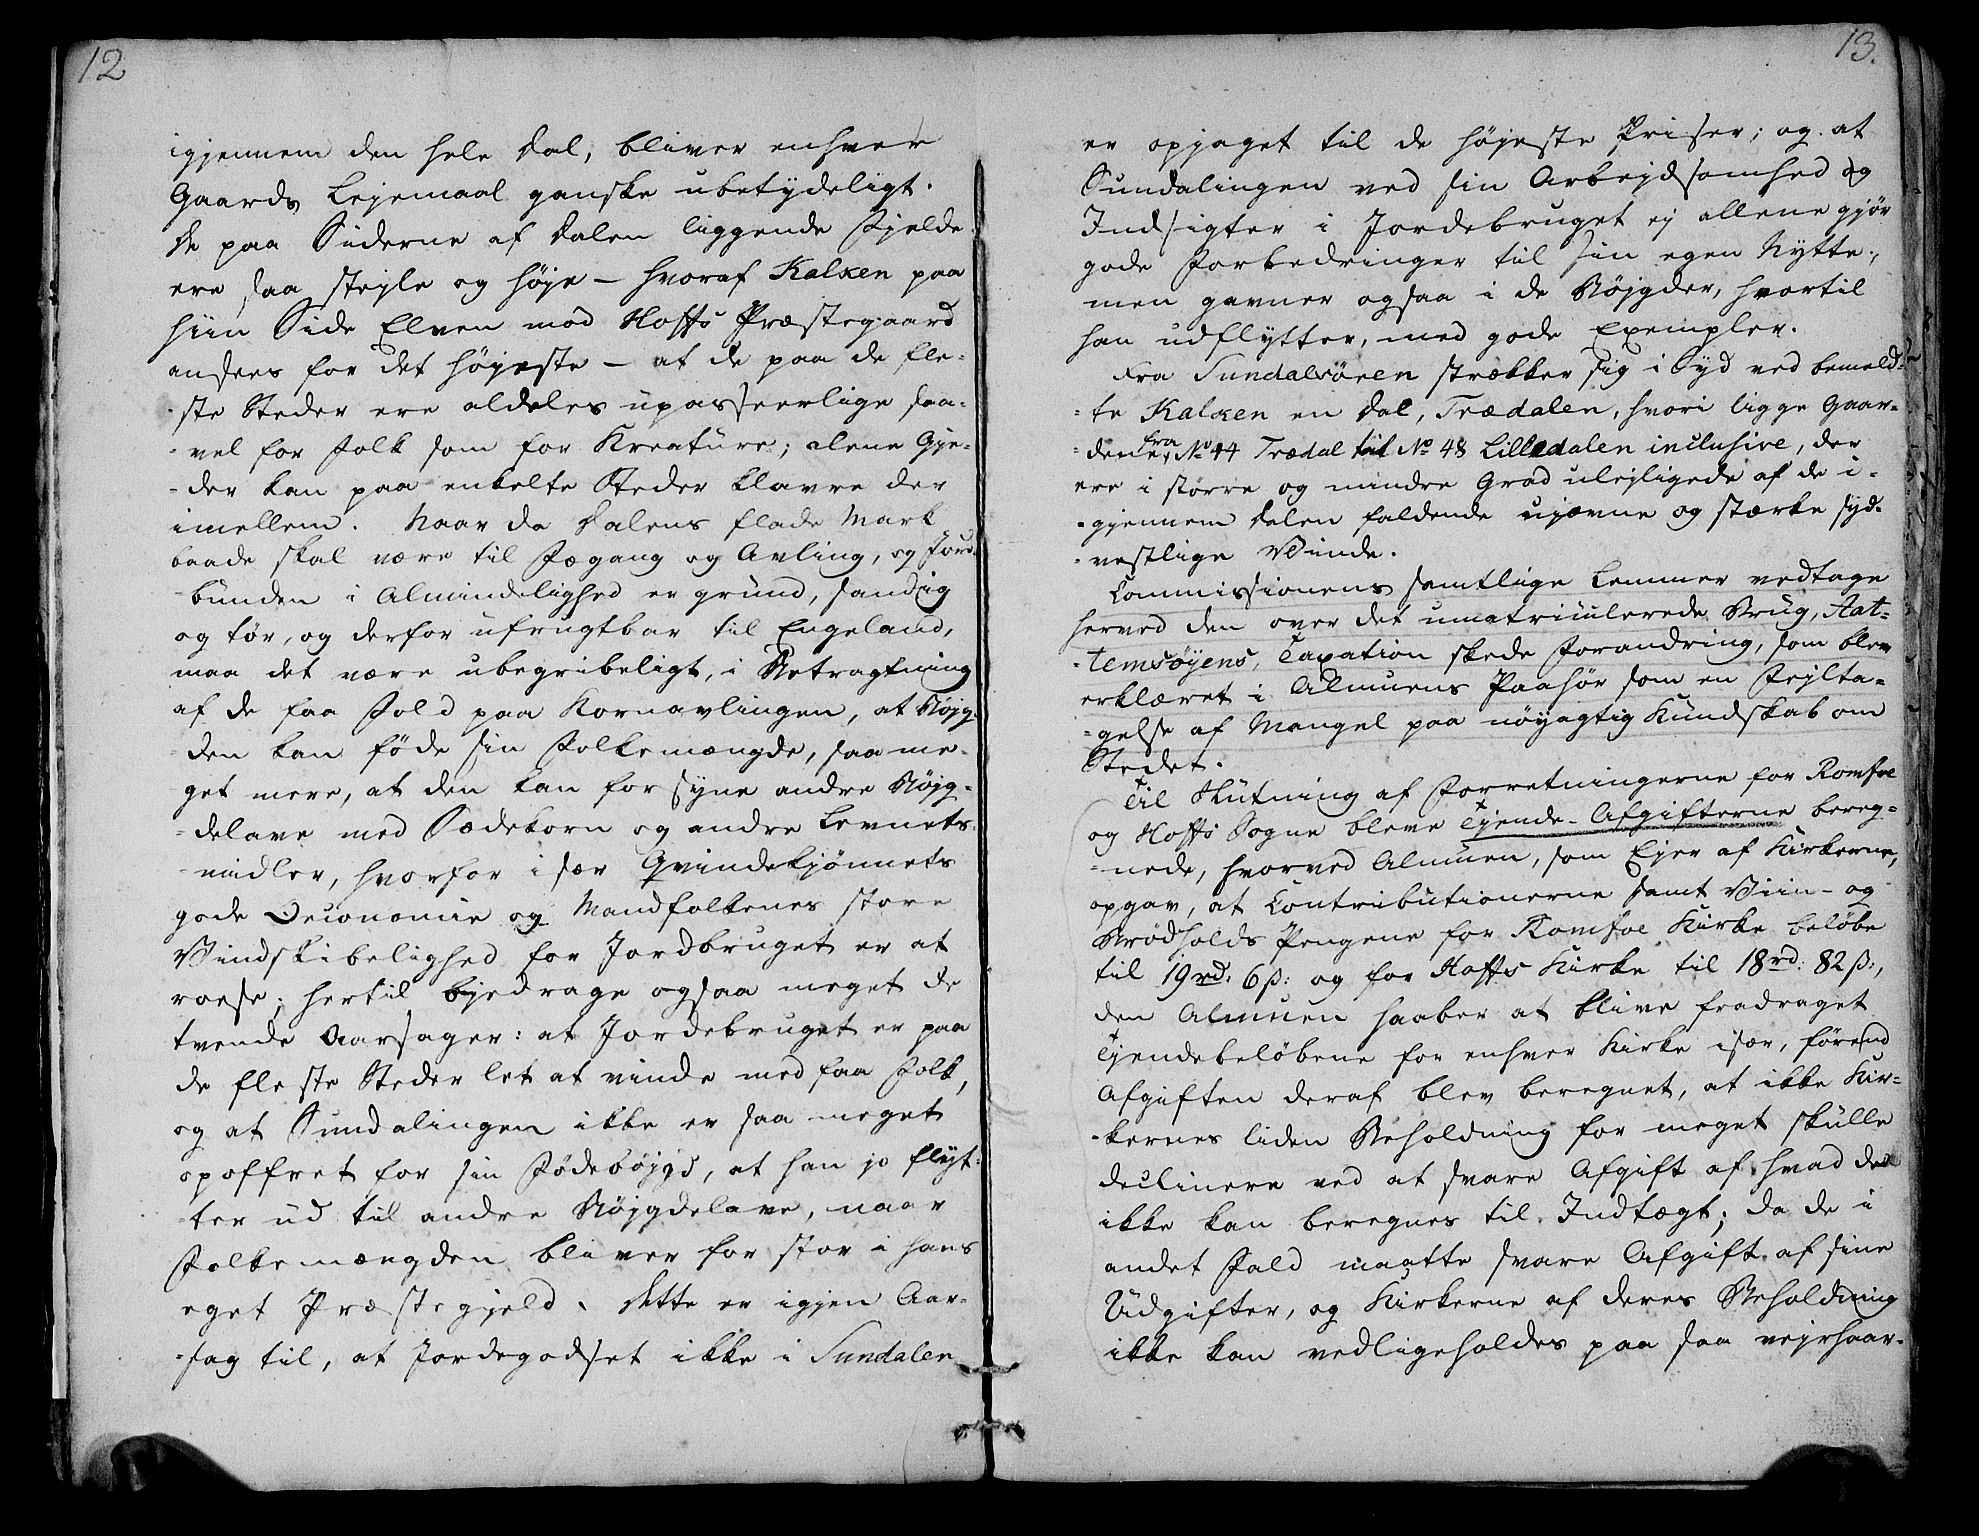 12
igjennem den hele Dal, bliver enhver
Gaards Lejemaal ganske ubetydeligt.
De paa Siderne af Dalen liggende Fjelde
ere saa stejle og høje — hvoraf Kalken paa
hiin Side Elven mod Hoffs Præstegaard
ansees for det højeste — at de paa de fle-
-ste Steder ere aldeles upasseerlige saa-
-vel for Folk som for Kreature; alene Gje-
-der kan paa enkelte Steder klavre der
imellem. Naar da Dalens flade Mark
baade skal være til Fægang og Avling, og Jord-
-bunden i Almindelighed er grund, sandig
og tør, og derfor ufrugtbar til Engeland,
maa det være ubegribeligt, i Betragtning
af de faa Fold paa Kornavlingen, at Bøjg-
-den kan føde sin Folkemængde, saa me-
get mere, at den kan forsyne andre Bøjg-
-delave med Sædekorn og andre Levnets-
-midler, hvorfor især Qvindekjønnets
gode Oeconomie og Mandfolkenes store
Vindskibelighed for Jordbruget er at
roese; hertil bjedrage ogsaa meget de
tvende Aarsager: at Jordebruget er paa
de fleste Steder let at vinde med faa Folk,
og at Sundalingen ikke er saa meget
opoffret for sin Fødebøjgd, at han jo flyt-
-ter ud til andre Bøjgdelave, naar
Folkemængden bliver for stor i hans
eget Præstegjeld. Dette er igjen Aar-
-sag til, at Jordegodset ikke i Sundalen
13.
er opjaget til de højeste Priser; og at
Sundalingen ved sin Arbejdsomhed og
Indsigter i Jordebruget ej allene gjør
gode Forbedringer til sin egen Nytte;
men gavner ogsaa i de Bøjgder, hvortil
han udflytter, med gode Exempler.
Fra Sundalsören strækker sig i Syd ved bemeld-
-te Kalken en Dal, Trædalen, hvori ligge Gaar-
-dene fra No 44 Trædal til No 48 Lilledalen inclusive, der
ere i større og mindre Grad ulejligede af de i-
-gjennem Dalen faldende ujævne og stærke syd-
-vestlige Vinde.
Commissionens samtlige Lemmer vedtage
herved den over det umatriculerede Brug, Aat-
-temsøyens, Taxation skede Forandring, som blev
erklæret i Almuens Paahør som en Fejlta-
-gelse af Mangel paa nøyagtig Kundskab om
Stedet.
Til Slutning af Forretningerne for Romfoe
og Hoffs Sogne bleve Tjende-Afgifterne bereg-
-nede, hvorved Almuen, som Ejer af Kirkerne,
opgav, at Contributionerne samt Viin- og
Brødholds Pengene for Romfoe Kirke beløbe
til 19rd: 6ß: og for Hoffs Kirke til 18rd: 82ß:,
den Almuen haaber at blive fradraget
Tjendebeløbene for enhver Kirke især, førend
Afgiften deraf blev beregnet, at ikke Kir-
-kernes liden Beholdning for meget skulle
declinere ved at svare Afgift af hvad der
ikke kan beregnes til Indtægt; da de i
andet Fald maatte svare Afgift af sine
Udgifter, og Kirkerne af deres Beholdning
ikke kan vedligeholdes paa saa vejrhaar-